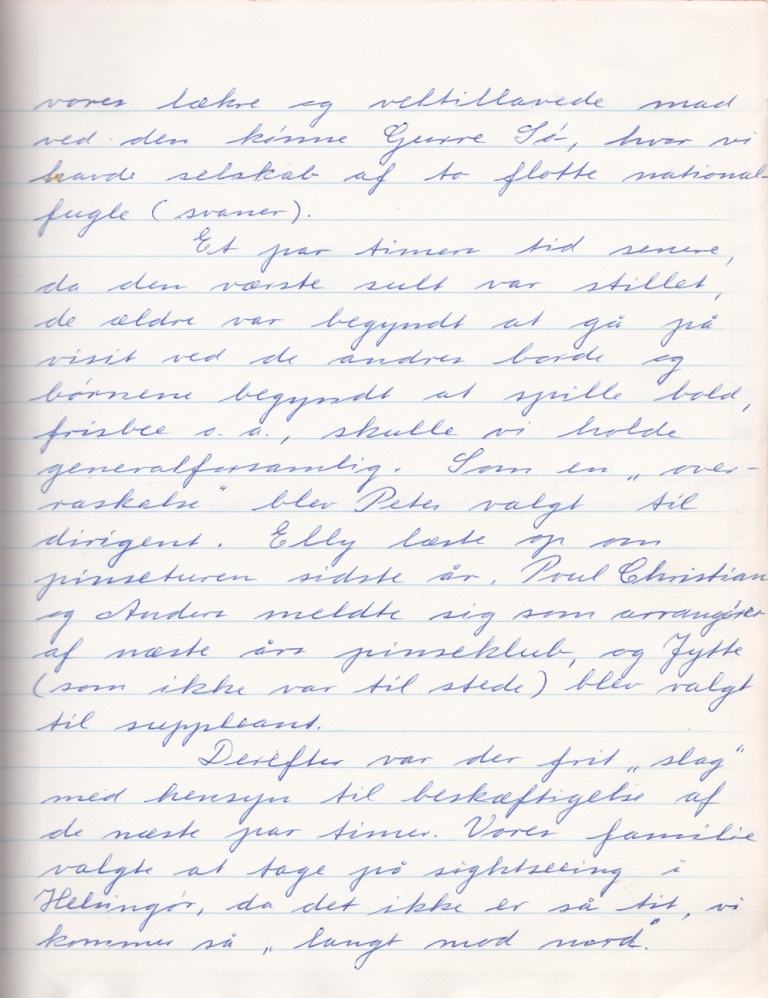 vores lækre og veltillavede mad
ved den kønne Gurre Sø, hvor vi
havde selskab af to flotte national-
fugle (svaner).
Et par timers tid senere,
da den værste sult var stillet,
de ældre var begyndt at gå på
visit ved de andres borde og
børnene begyndt at spille bold,
frisbee o. a., skulle vi holde
generalforsamlig. Som en „over-
raskelse" blev Peter valgt til
dirigent. Elly læste op om
pinseturen sidste år. Poul Christian
og Anders meldte sig som arrangører
af næste års pinseklub, og Jytte
(som ikke var til stede) blev valgt
til suppleant.
Derefter var der frit „slag"
med hensyn til beskæftigelse af
de næste par timer. Vores familie
valgte at tage på sightseeing i
Helsingør, da det ikke er så tit, vi
kommer så „langt mod nord".